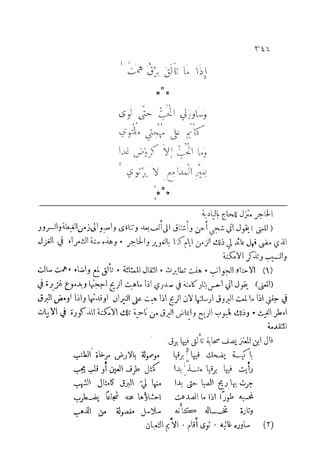 ٣٤٤
إِذَا مَا تَأَلَّقَ بَرْقٌ هَمَتْ ١
* * *
وَسَاوَرَنِي الْحُبُّ حَتَّى ثَوَى
كَأَيْمٍ عَلَى مُهْجَتِي مُلْتَوِي
وَمَا الْحُبُّ إِلَّا كَرَوْضٍ غَدَا
بِغَيْرِ الْمَدَامِعِ لَا يَرْتَوِي ٢
* * *
الحاجر منزل للحاج بالبادية
(المعنى) يقول اني شجي أحن وأشتاق الى ألف بعد وتناءى وأصبو الى زمن الغبطة والسرور
الذي مضى فهل عائد لي ذلك الزمن ايام كنا بالغوير والحاجر • وهذه سنة الشعراء في الغزل
والنسيب وتذكر الامكنة
(١) الاحناء الجوانب • هفت تطايرت • انتقال • تألق لمع واضاء • همت سالت
(المعنى) يقول اني أحس بنار كامنة في صدري اذا ما هبت الريح اججتها وبدموع غزيرة في
جفني اذا ما لمعت البروق ارسلتها لان الريح اذا هبت على النيران اوقدتها واذا اومض البرق
امطر الغيث • وذلك لهبوب الريح وايماض البرق من ناحية تلك الامكنة المذكورة في الابيات
المتقدمة
قال ابن المعتز يصف سحابة تألق فيها برق
باكية يضحك فيها برقها موصولة بالارض مرخاة الطنب
رأيت فيها برقها منذ بدا كمثل طرف العين أو قلب يجب
جرت بها ريح الصبا حتى بدا منها لي البرق كامثال الشهب
تحسبه طورًا اذا ما انصدعت احشاؤها عنه شجاعًا يضطرب
وتارة تخساله كأنه سلاسل مصقولة من الذهب
(٢) ساوره غالبه • ثوى أقام • الأيم الثعبان